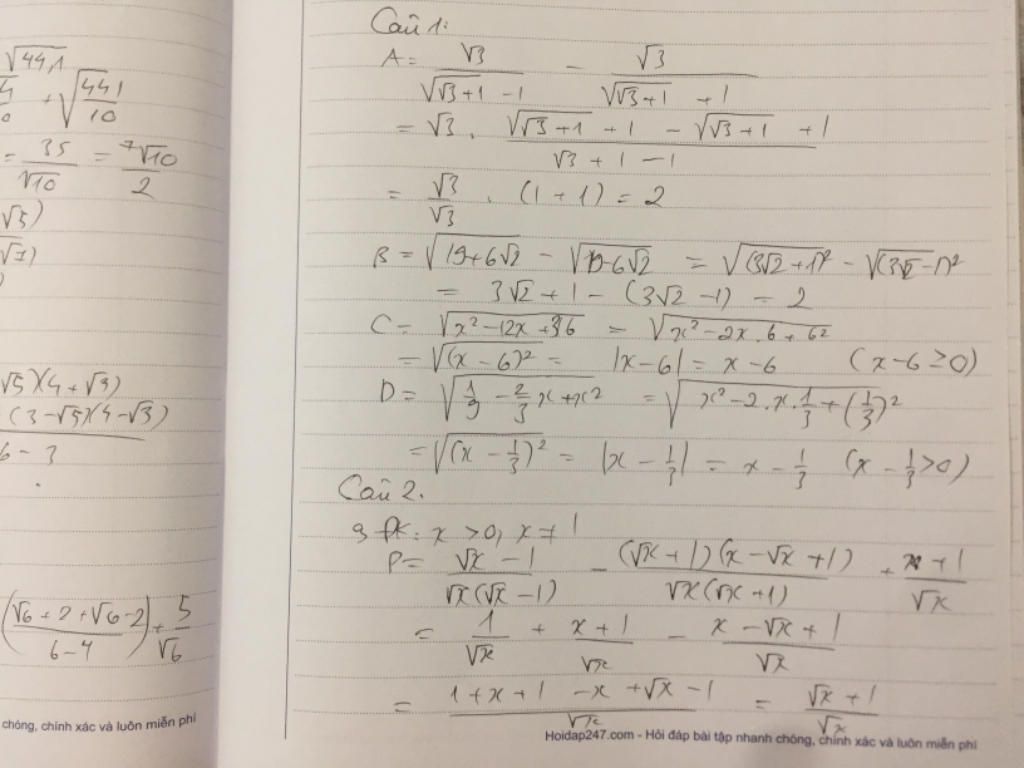 √441
+ √441/10
= 35/√10 = 7√10/2
√5)
√7)
√5)(4+√3)
(3-√5)(4-√3)
6-3
(√6+2+√6-2/6-4) + 5/√6
chóng, chính xác và luôn miễn phí
Câu 1:
A = √3/(√(√3+1) -1) - √3/(√(√3+1) +1)
= √3 . (√(√3+1) +1 - √(√3+1) +1)/(√3+1-1)
= √3/√3 . (1+1) = 2
B = √(19+6√2) - √(19-6√2) = √(3√2+1)² - √(3√2-1)²
= 3√2+1 - (3√2-1) = 2
C = √(x²-12x+36) = √(x²-2x.6+6²)
= √(x-6)² = |x-6| = x-6 (x-6≥0)
D = √(1/9 - 2/3 x+x²) = √(x²-2.x.1/3+(1/3)²)
= √(x-1/3)² = |x-1/3| = x-1/3 (x-1/3>0)
Câu 2.
a, đk: x >0, x≠1
P = (√x -1)/(√x(√x-1)) - (√x+1)(x-√x+1)/(√x(√x+1)) + (x+1)/√x
= 1/√x + (x+1)/√x - (x-√x+1)/√x
= (1+x+1-x+√x-1)/√x = (√x+1)/√x
Hoidap247.com - Hỏi đáp bài tập nhanh chóng, chính xác và luôn miễn phí